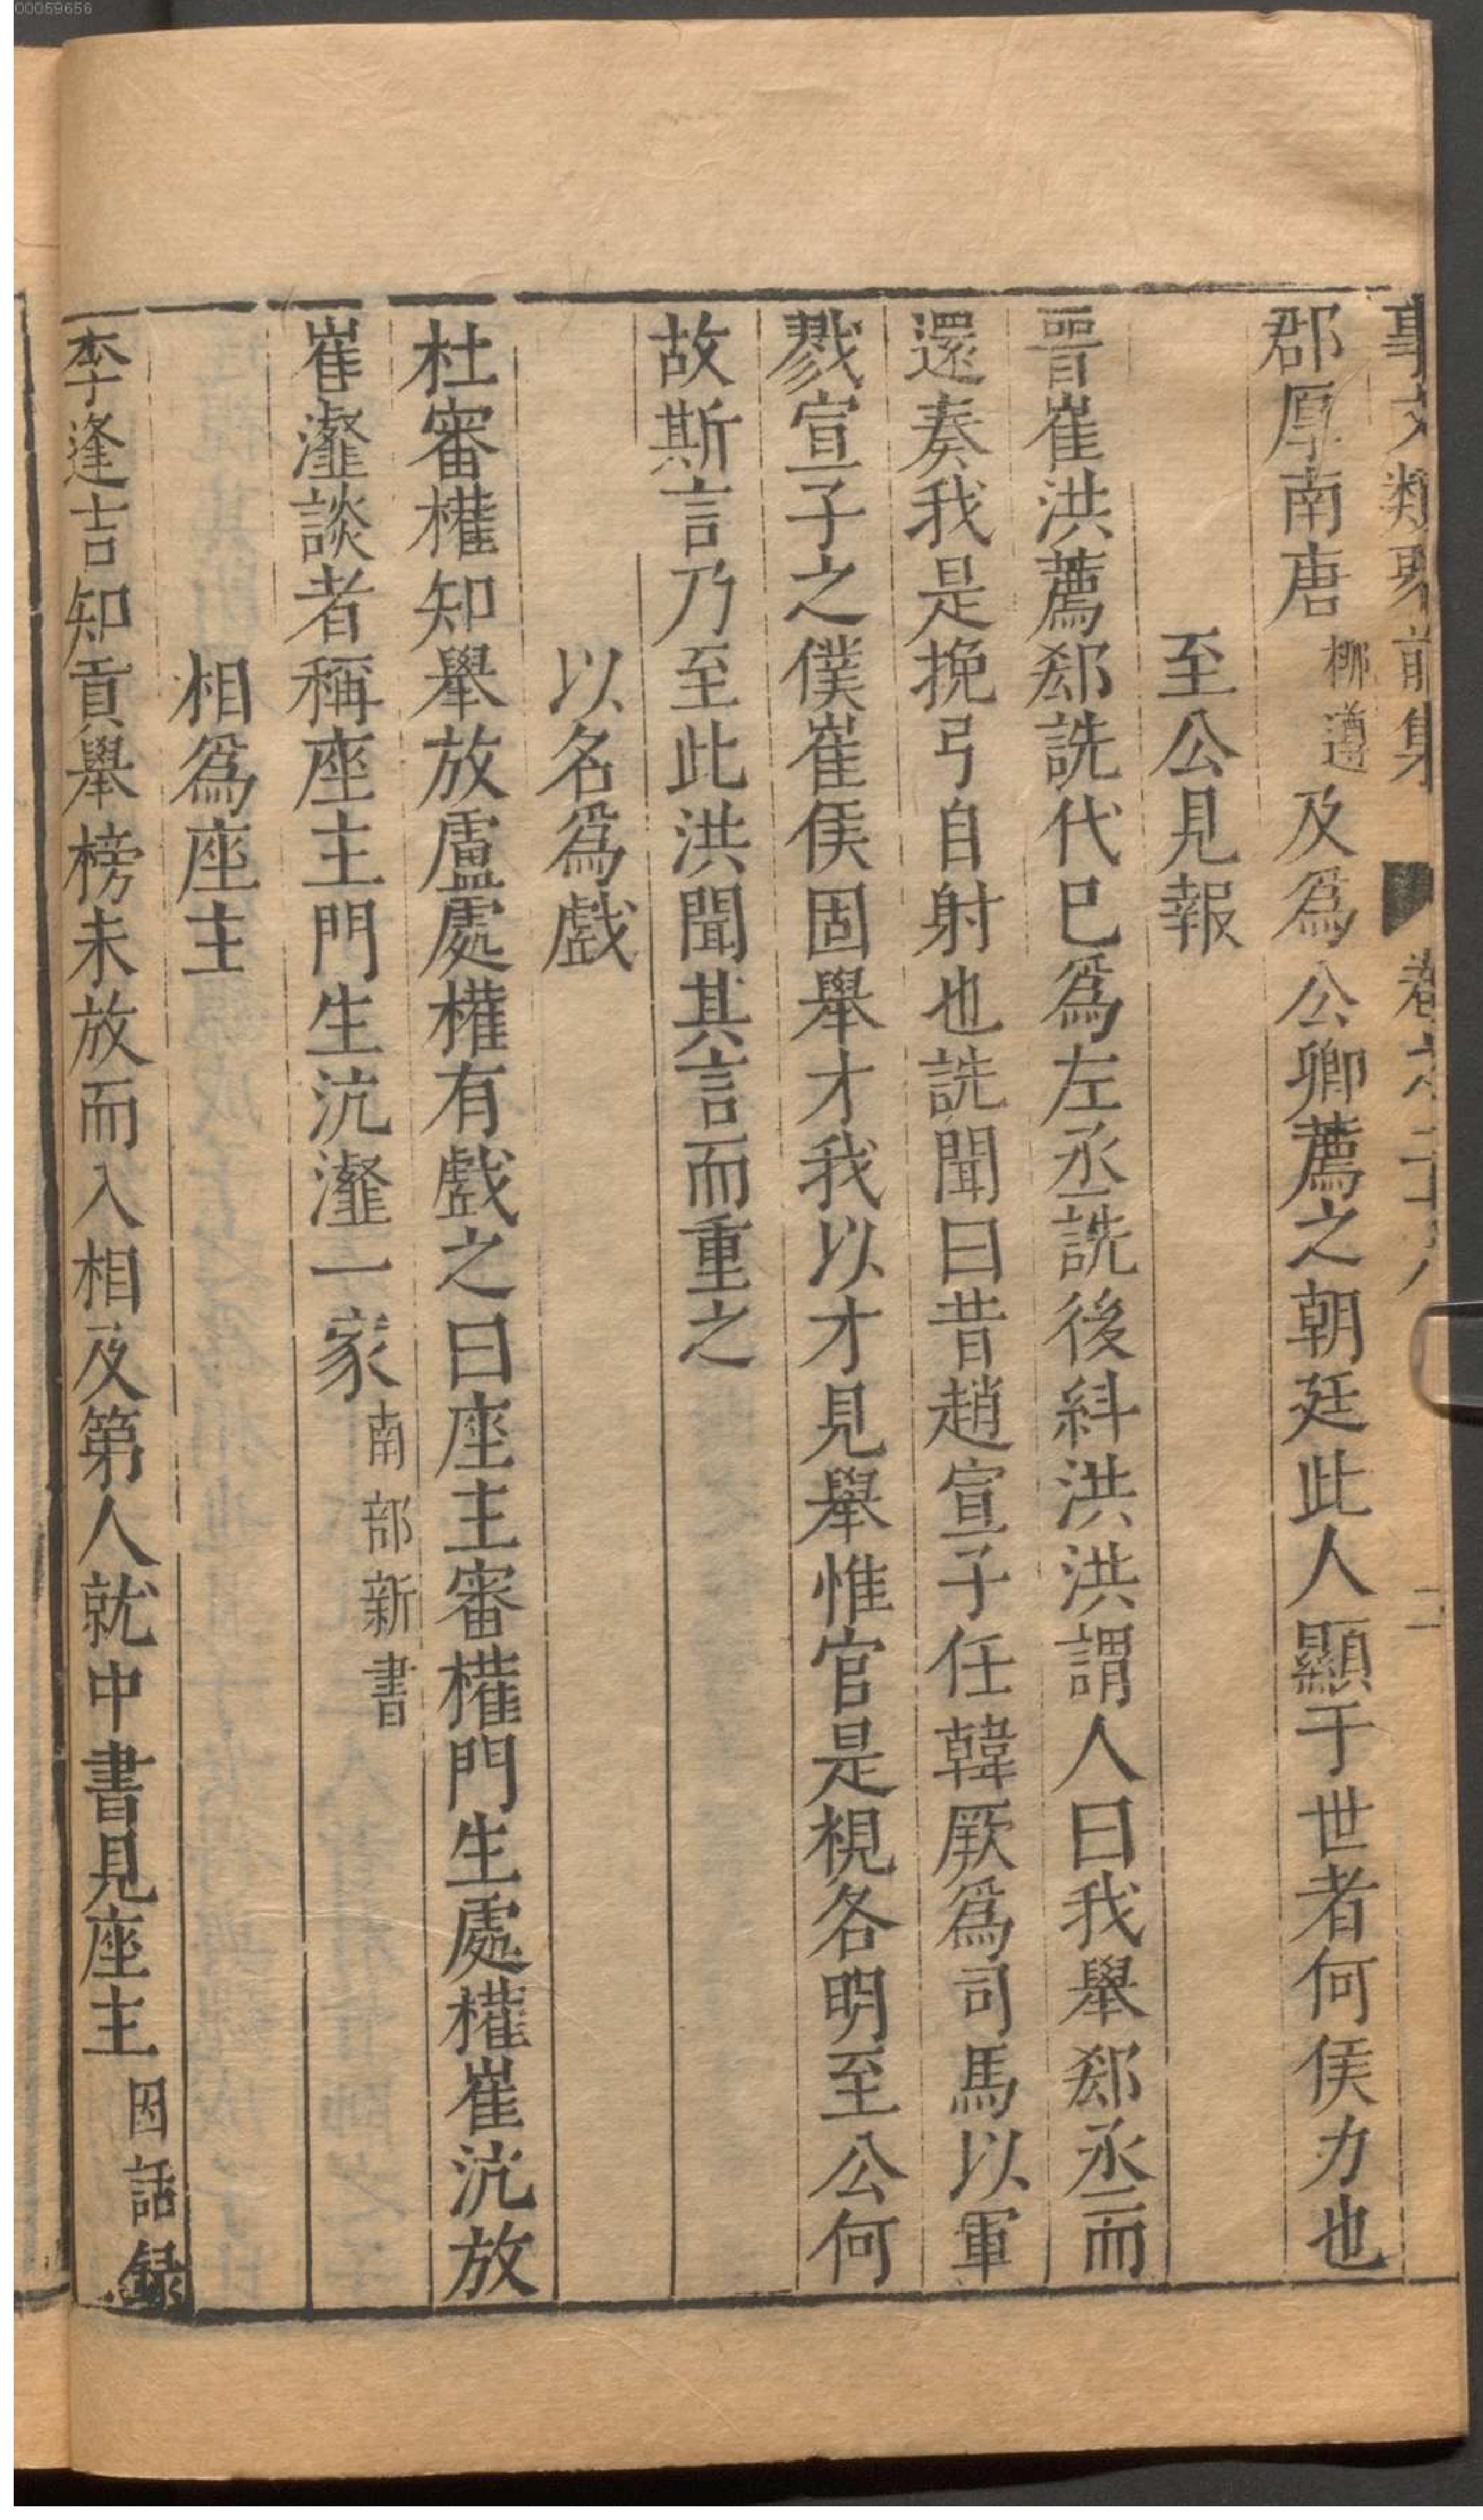 00059656
事文類聚前集 卷之二十八 二
郡厚南唐柳遵及爲公卿薦之朝廷此人顯于世者何侯力也
至公見報
晋崔洪薦郄詵代已爲左丞詵後糾洪洪謂人曰我舉郄丞而
還奏我是挽弓自射也詵聞曰昔趙宣子任韓厥爲司馬以軍
戮宣子之僕崔侯固舉才我以才見舉惟官是視各明至公何
故斯言乃至此洪聞其言而重之
以名爲戲
杜審權知舉放盧處權有戲之曰座主審權門生處權崔沆放
崔瀣談者稱座主門生沆瀣一家南部新書
相爲座主
李逢吉知貢舉榜未放而入相及第人就中書見座主因話録